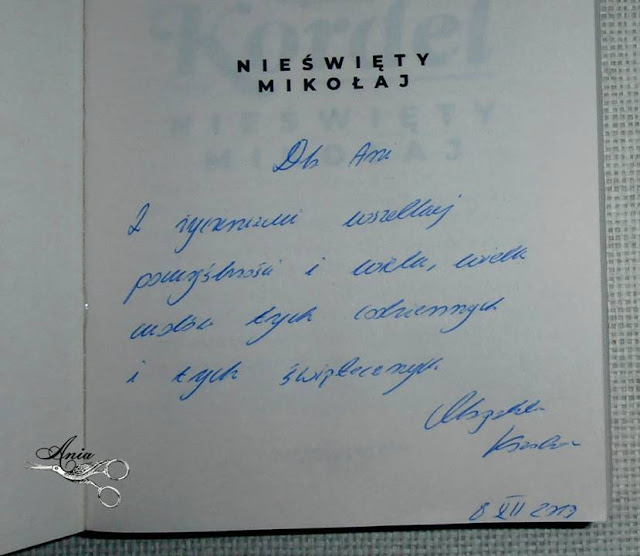 Kordel
NIEŚWIĘTY
MIKOŁAJ
NIEŚWIĘTY
MIKOŁAJ
Dla Ani
Z życzeniami wszelkiej
pomyślności i wielu, wielu
cudów tych codziennych
i tych świątecznych
Magdalena
Kordel
8 XII 2019
Ania